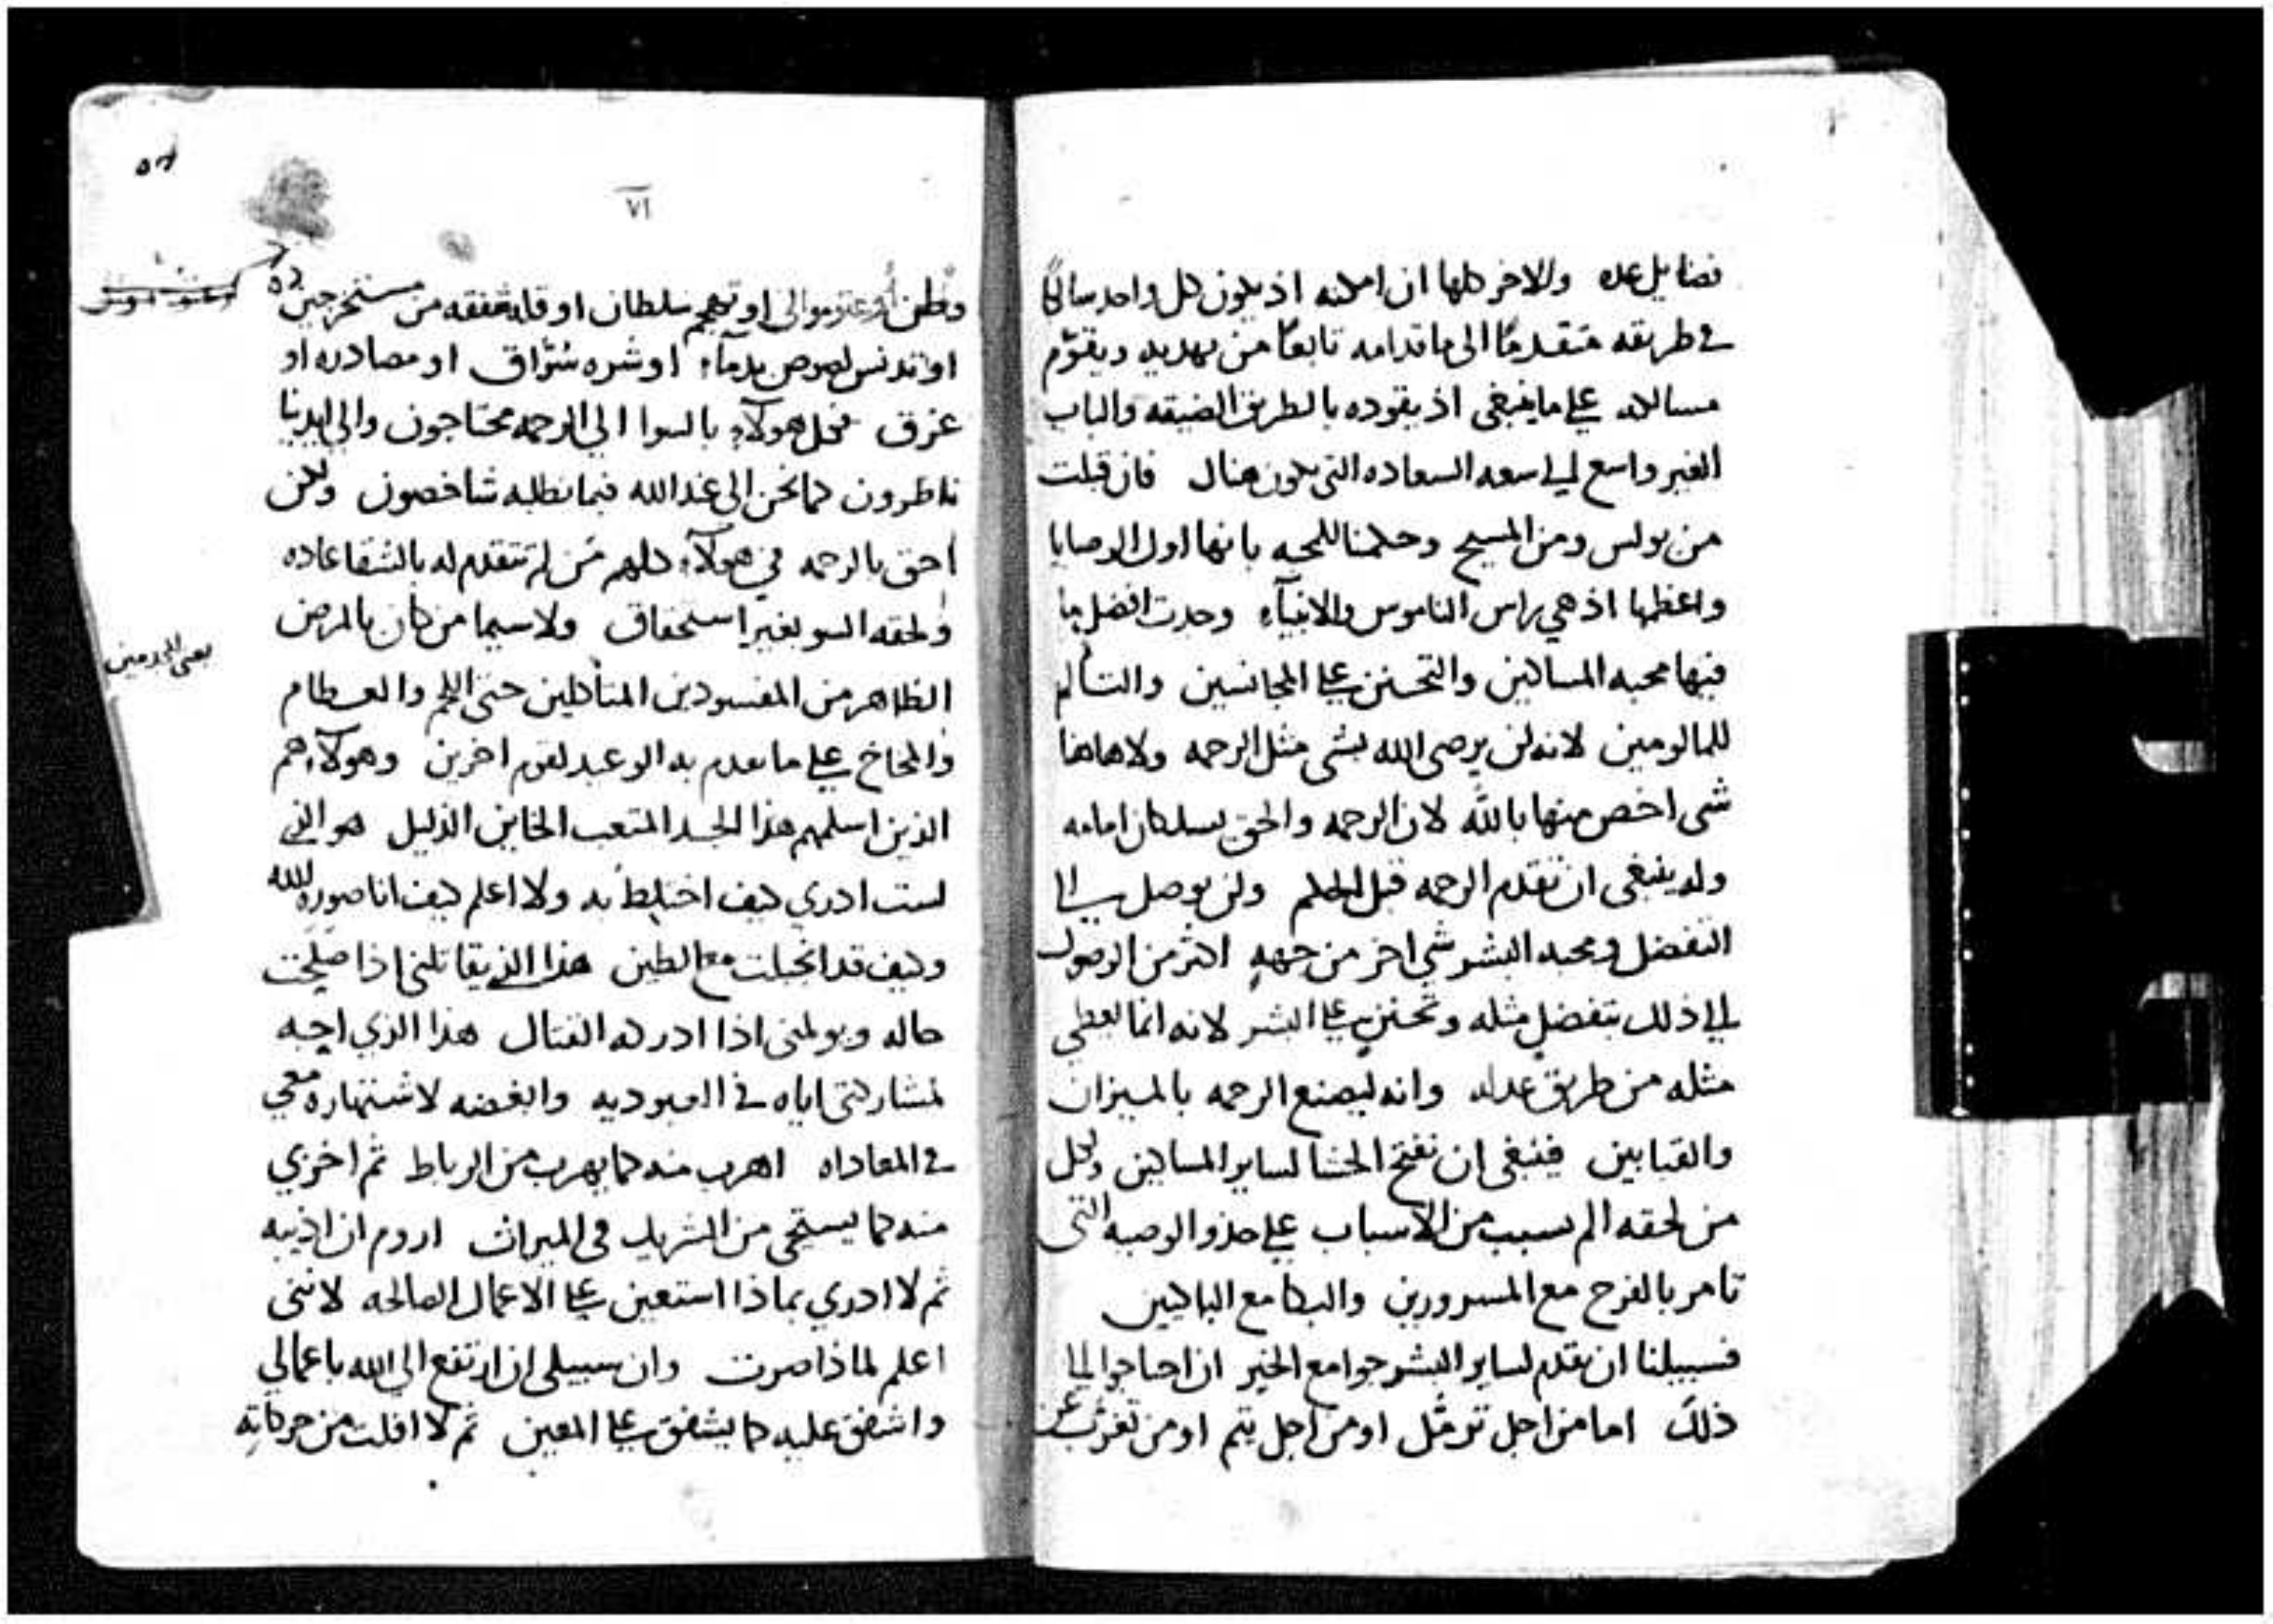 فضايل عده والاخر كلها ان امكنه اذ يكون كل واحد سالكا
في طريقه متقدما الى ما قدامه تابعا من يهديه ويقوّم
مسالكه على ما ينبغي اذ يقوده بالطريق الضيقه والباب
الغير واسع الى سعه السعاده التي تكون هناك فان قبلت
من بولس ومن المسيح وحكمنا للمحبه بانها اول الوصايا
واعظمها اذ هي راس الناموس والانبيآء وجدت افضل ما
فيها محبه المساكين والتحنن على المجانسين والتألم
للمالومين لانه لن يرضى الله بشي مثل الرحمه ولا هاهنا
شي اخص منها بالله لان الرحمه والحق يسلكان امامه
وله ينبغي ان تقدم الرحمه قبل الحكم ولن يوصل الى
التفضل ومحبه البشر شي اخر من جهةٍ اكثر من الوصول
الى ذلك بتفضلٍ مثله وتحننٍ على البشر لانه انما يعطي
مثله من طريق عدله وانه ليصنع الرحمه بالميزان
والقبابين فينبغي ان نفتح الحشا لساير المساكين ولكل
من لحقه الم بسبب من الاسباب على حذو الوصيه التي
تامر بالفرح مع المسرورين والبكا مع الباكيين
فسبيلنا ان نقدم لساير البشر جوامع الخير ان احتاجوا الى
ذلك اما من اجل ترمّل او من اجل يتم او من تغرّب عن
٥٦
٧١
وطن او عتو موالى او تهجم سلطان او قله شفقه من مستخرجين
او تدنس لصوص بدمآء او شره سُرّاق او مصادره او
غرق فكل هولآء بالسوا الى الرحمه محتاجون والى ايدينا
ناظرون كما نحن الى عند الله فيما نطلبه شاخصون ولكن
احق بالرحمه في هولآء كلهم من لم تتقدم له بالشقا عاده
ولحقه السو بغير استحقاق ولا سيما من كان بالمرض
يعني المجدومين
الظاهر من المفسودين المتأكلين حتى اللحم والعظام
والمخاخ على ما تقدم به الوعيد لقوم اخرين وهولآء هم
الذين اسلمهم هذا الجسد المتعب الخاين الذليل هو الذي
لست ادري كيف اختلطُ به ولا اعلم كيف انا صورة لله
وكيف قد انجبلت مع الطين هذا الذي يقاتلني اذا صلحت
حاله ويولمني اذا ادركه القتال هذا الذي احبه
لمشاركتي اياه في العبوديه وابغضه لاشتهاره معي
في المعاداه اهرب منه كما يهرب من الرباط ثم اخزي
منه كما يستحي من الشريك في الميراث اروم ان اذيبه
ثم لا ادري بماذا استعين على الاعمال الصالحه لانني
اعلم لماذا صرت وان سبيلي ان ارتفع الى الله باعمالي
واشفق عليه كما يشفق على المعين ثم لا افلت من حركاته